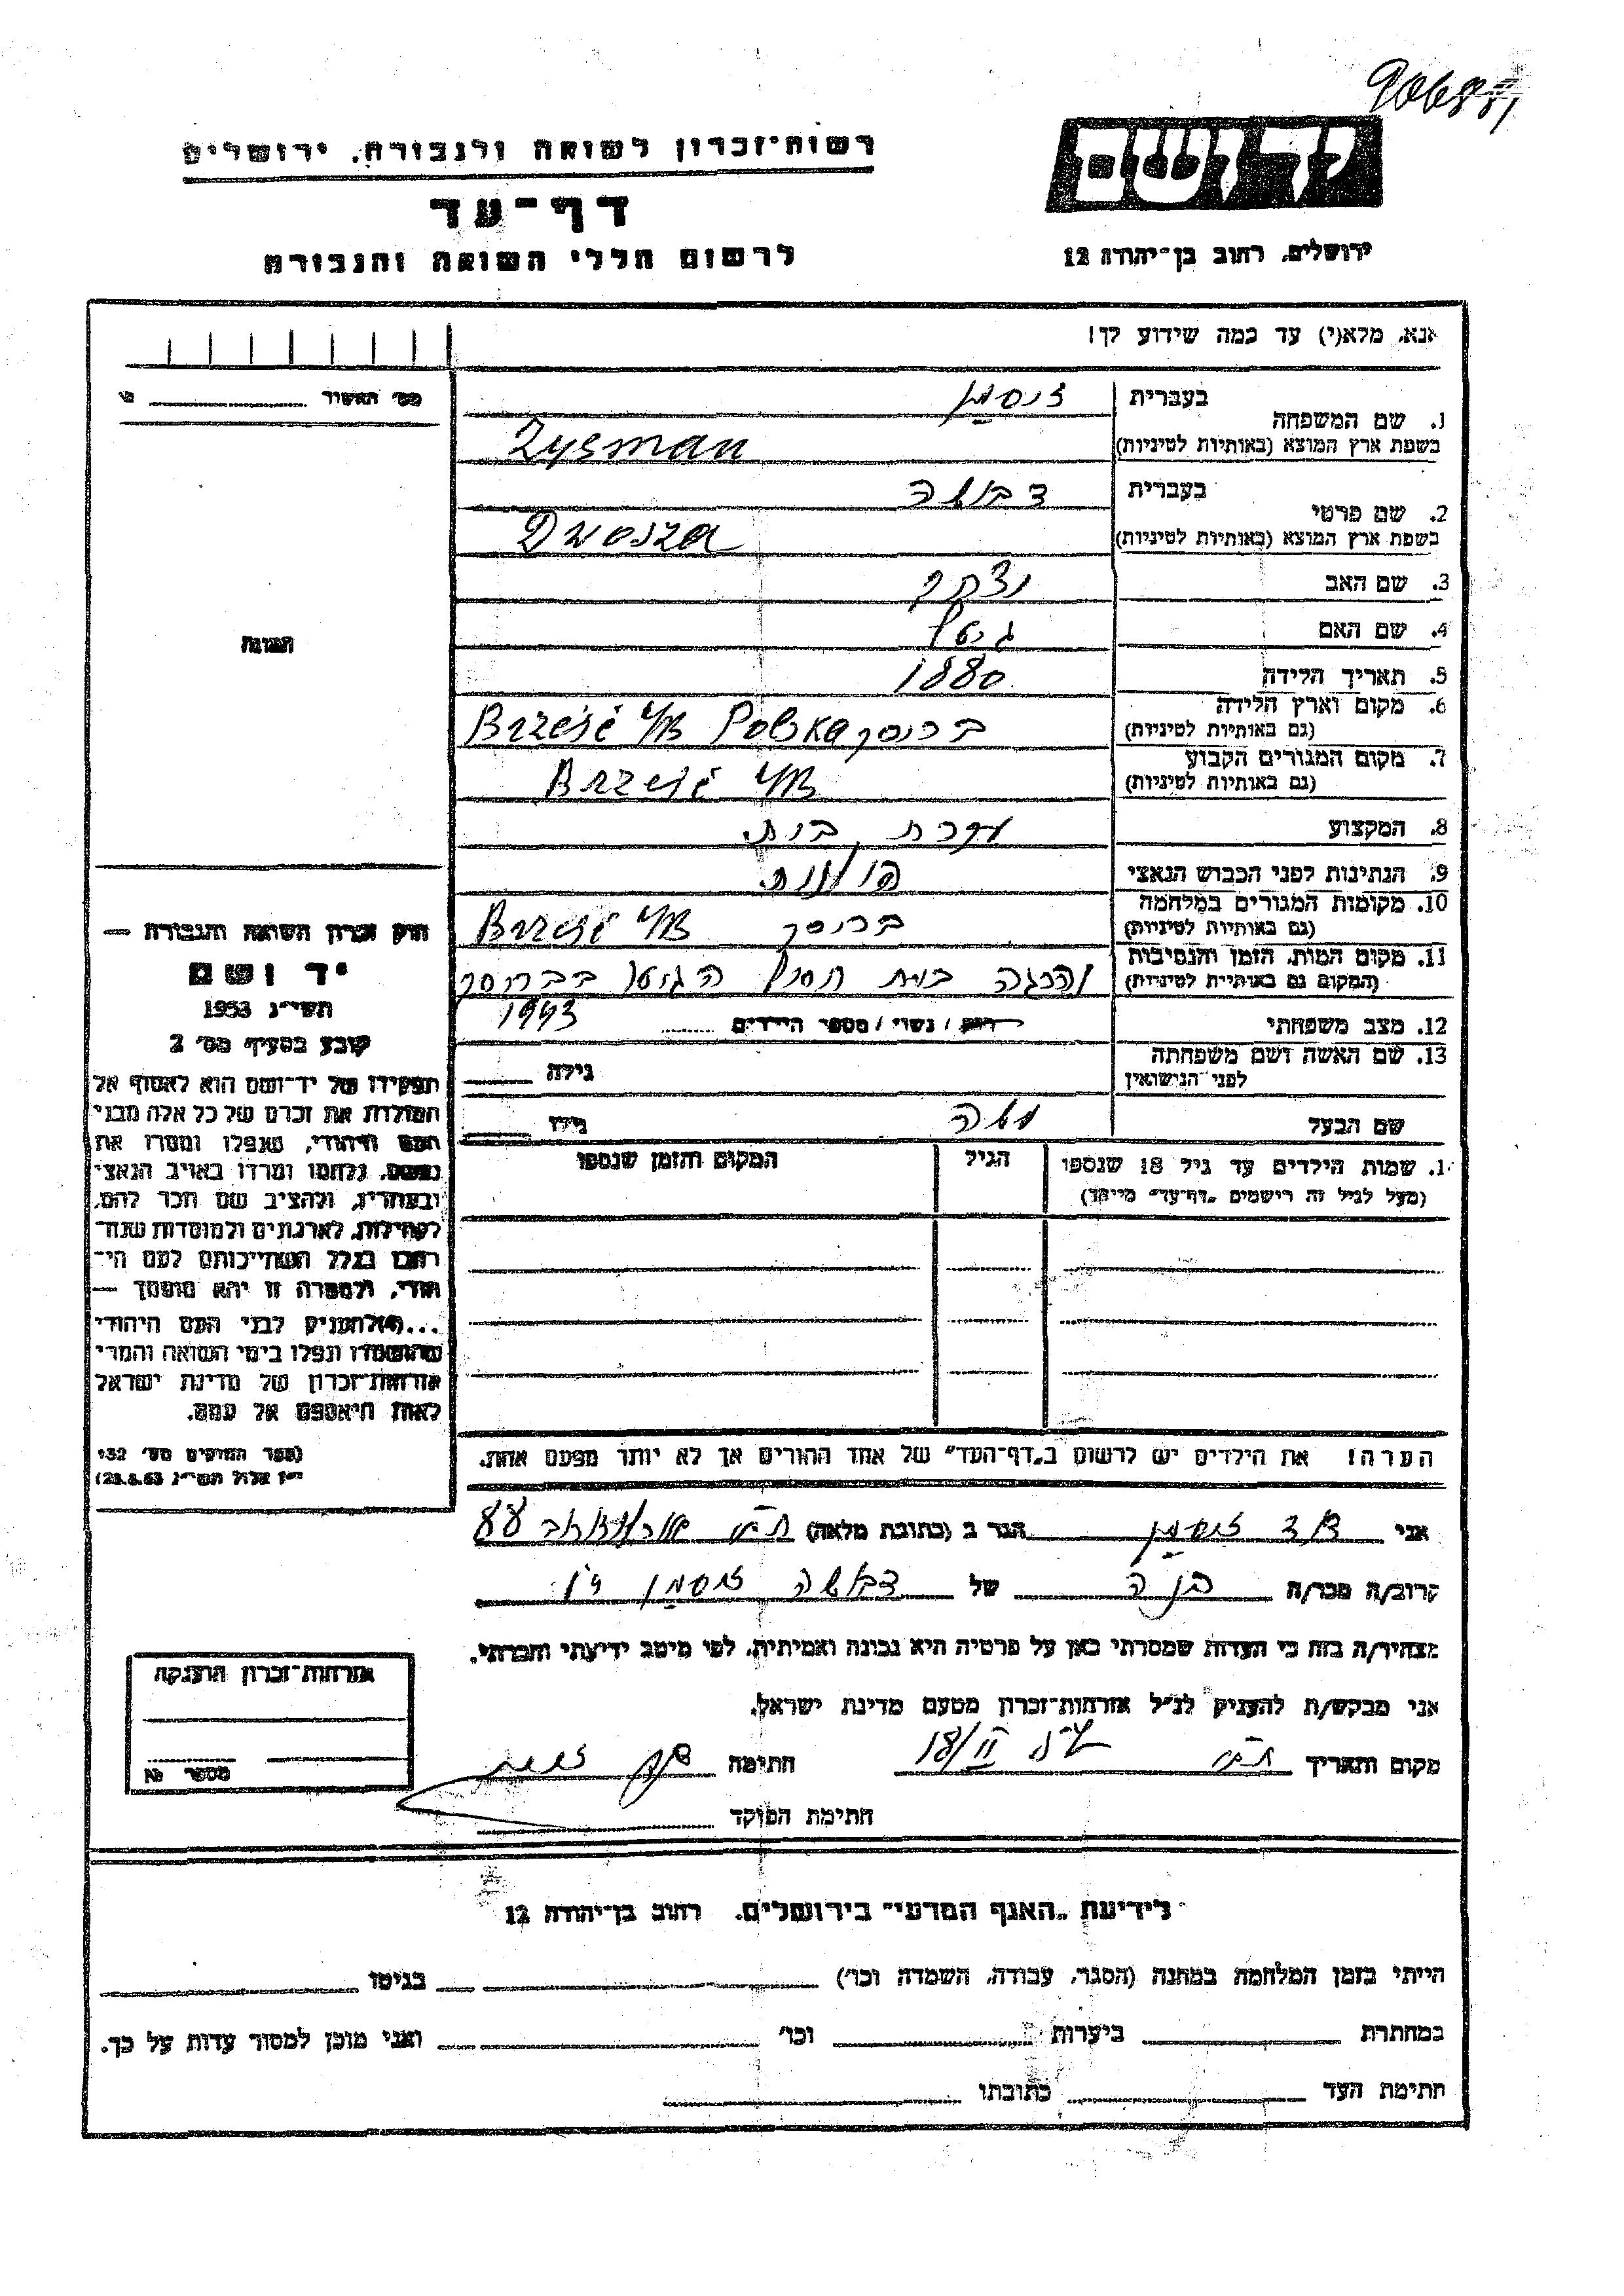 906881
יד ושם
רשות־זכרון לשואה ולגבורה, ירושלים
דף־עד
לרשום חללי השואה והגבורה
ירושלים, רחוב בן־יהודה 12
אנא, מלא(י) עד כמה שידוע לך!
מס׳ האשור
1. שם המשפחה
בעברית זיסמן
בשפת ארץ המוצא (באותיות לטיניות) Zysman
2. שם פרטי
בעברית דבושה
בשפת ארץ המוצא (באותיות לטיניות) Dwosza
3. שם האב יצחק
4. שם האם גיטל
5. תאריך הלידה 1880
6. מקום וארץ הלידה
(גם באותיות לטיניות) בריסק Brześć n/B Polska
7. מקום המגורים הקבוע
(גם באותיות לטיניות) Brześć n/B
8. המקצוע עקרת בית
9. הנתינות לפני הכבוש הנאצי פולנית
10. מקומות המגורים במלחמה
(גם באותיות לטיניות) בריסק Brześć n/B
11. מקום המות, הזמן והנסיבות
(המקום גם באותיות לטיניות) נהרגה בעת חסול הגיטו בבריסק
1943
12. מצב משפחתי רווק / נשוי / מספר הילדים
13. שם האשה ושם משפחתה
לפני הנישואין גילה
שם הבעל משה גילו
1. שמות הילדים עד גיל 18 שנספו
(מעל לגיל זה רישמים „דף־עד” מיוחד)
הגיל
המקום והזמן שנספו
הערה! את הילדים יש לרשום ב„דף־העד” של אחד ההורים אך לא יותר מפעם אחת.
תמונה
חוק זכרון השואה והגבורה —
יד ושם
תשי״ג 1953
קובע בסעיף מס׳ 2
תפקידו של יד־ושם הוא לאסוף אל
המולדת את זכרם של כל אלה מבני
העם היהודי, שנפלו ומסרו את
נפשם, נלחמו ומרדו באויב הנאצי
ובעוזריו, ולהציב שם וזכר להם,
לקהילות, לארגונים ולמוסדות שנח־
רבו בגלל השתייכותם לעם הי־
הודי, ולמטרה זו יהא מוסמך —
...(4) להעניק לבני העם היהודי
שהושמדו ונפלו בימי השואה והמרי
אזרחות־זכרון של מדינת ישראל
לאות היאספם אל עמם.
(ספר החוקים מס׳ 132
י״ז אלול תשי״ג 28.8.53)
אני דוד זיסמן הגר ב (כתובת מלאה) ת״א
קרוב/ה מכר/ה בן ה של דבושה זיסמן ז״ל
מצהיר/ה בזה כי העדות שמסרתי כאן על פרטיה היא נכונה ואמיתית, לפי מיטב ידיעתי והכרתי.
אני מבקש/ת להעניק לנ״ל אזרחות־זכרון מטעם מדינת ישראל.
מקום ותאריך ת״א 18/II חתימה דוד זיסמן
חתימת הפוקד
אזרחות־זכרון הוענקה
מספר No
לידיעת „האגף המדעי” בירושלים, רחוב בן־יהודה 12
הייתי בזמן המלחמה במחנה (הסגר, עבודה, השמדה וכו׳) בגיטו
במחתרת ביערות וכו׳ ואני מוכן למסור עדות על כך.
חתימת העד כתובתו